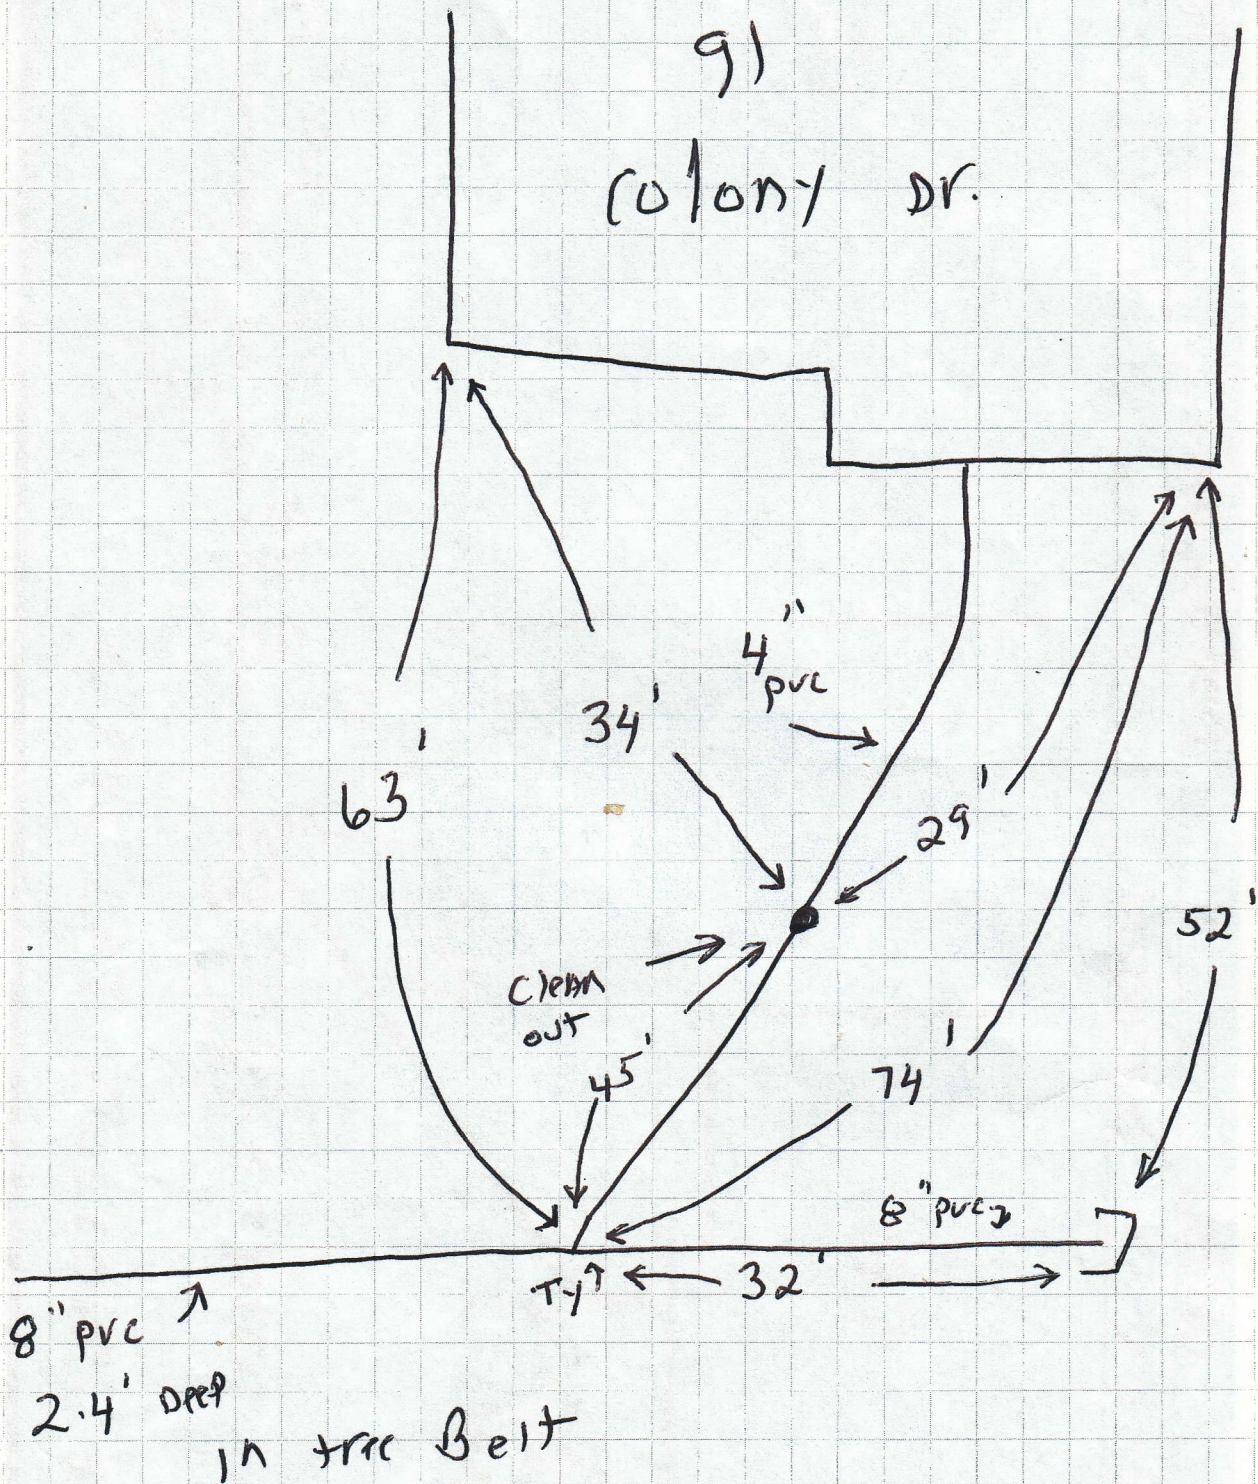 91
Colony Dr.
4"
pvc
34'
63'
29'
52'
Clean
out
45'
74'
8" pvc
Ty
32'
8" pvc
2.4' Deep
in tree Belt